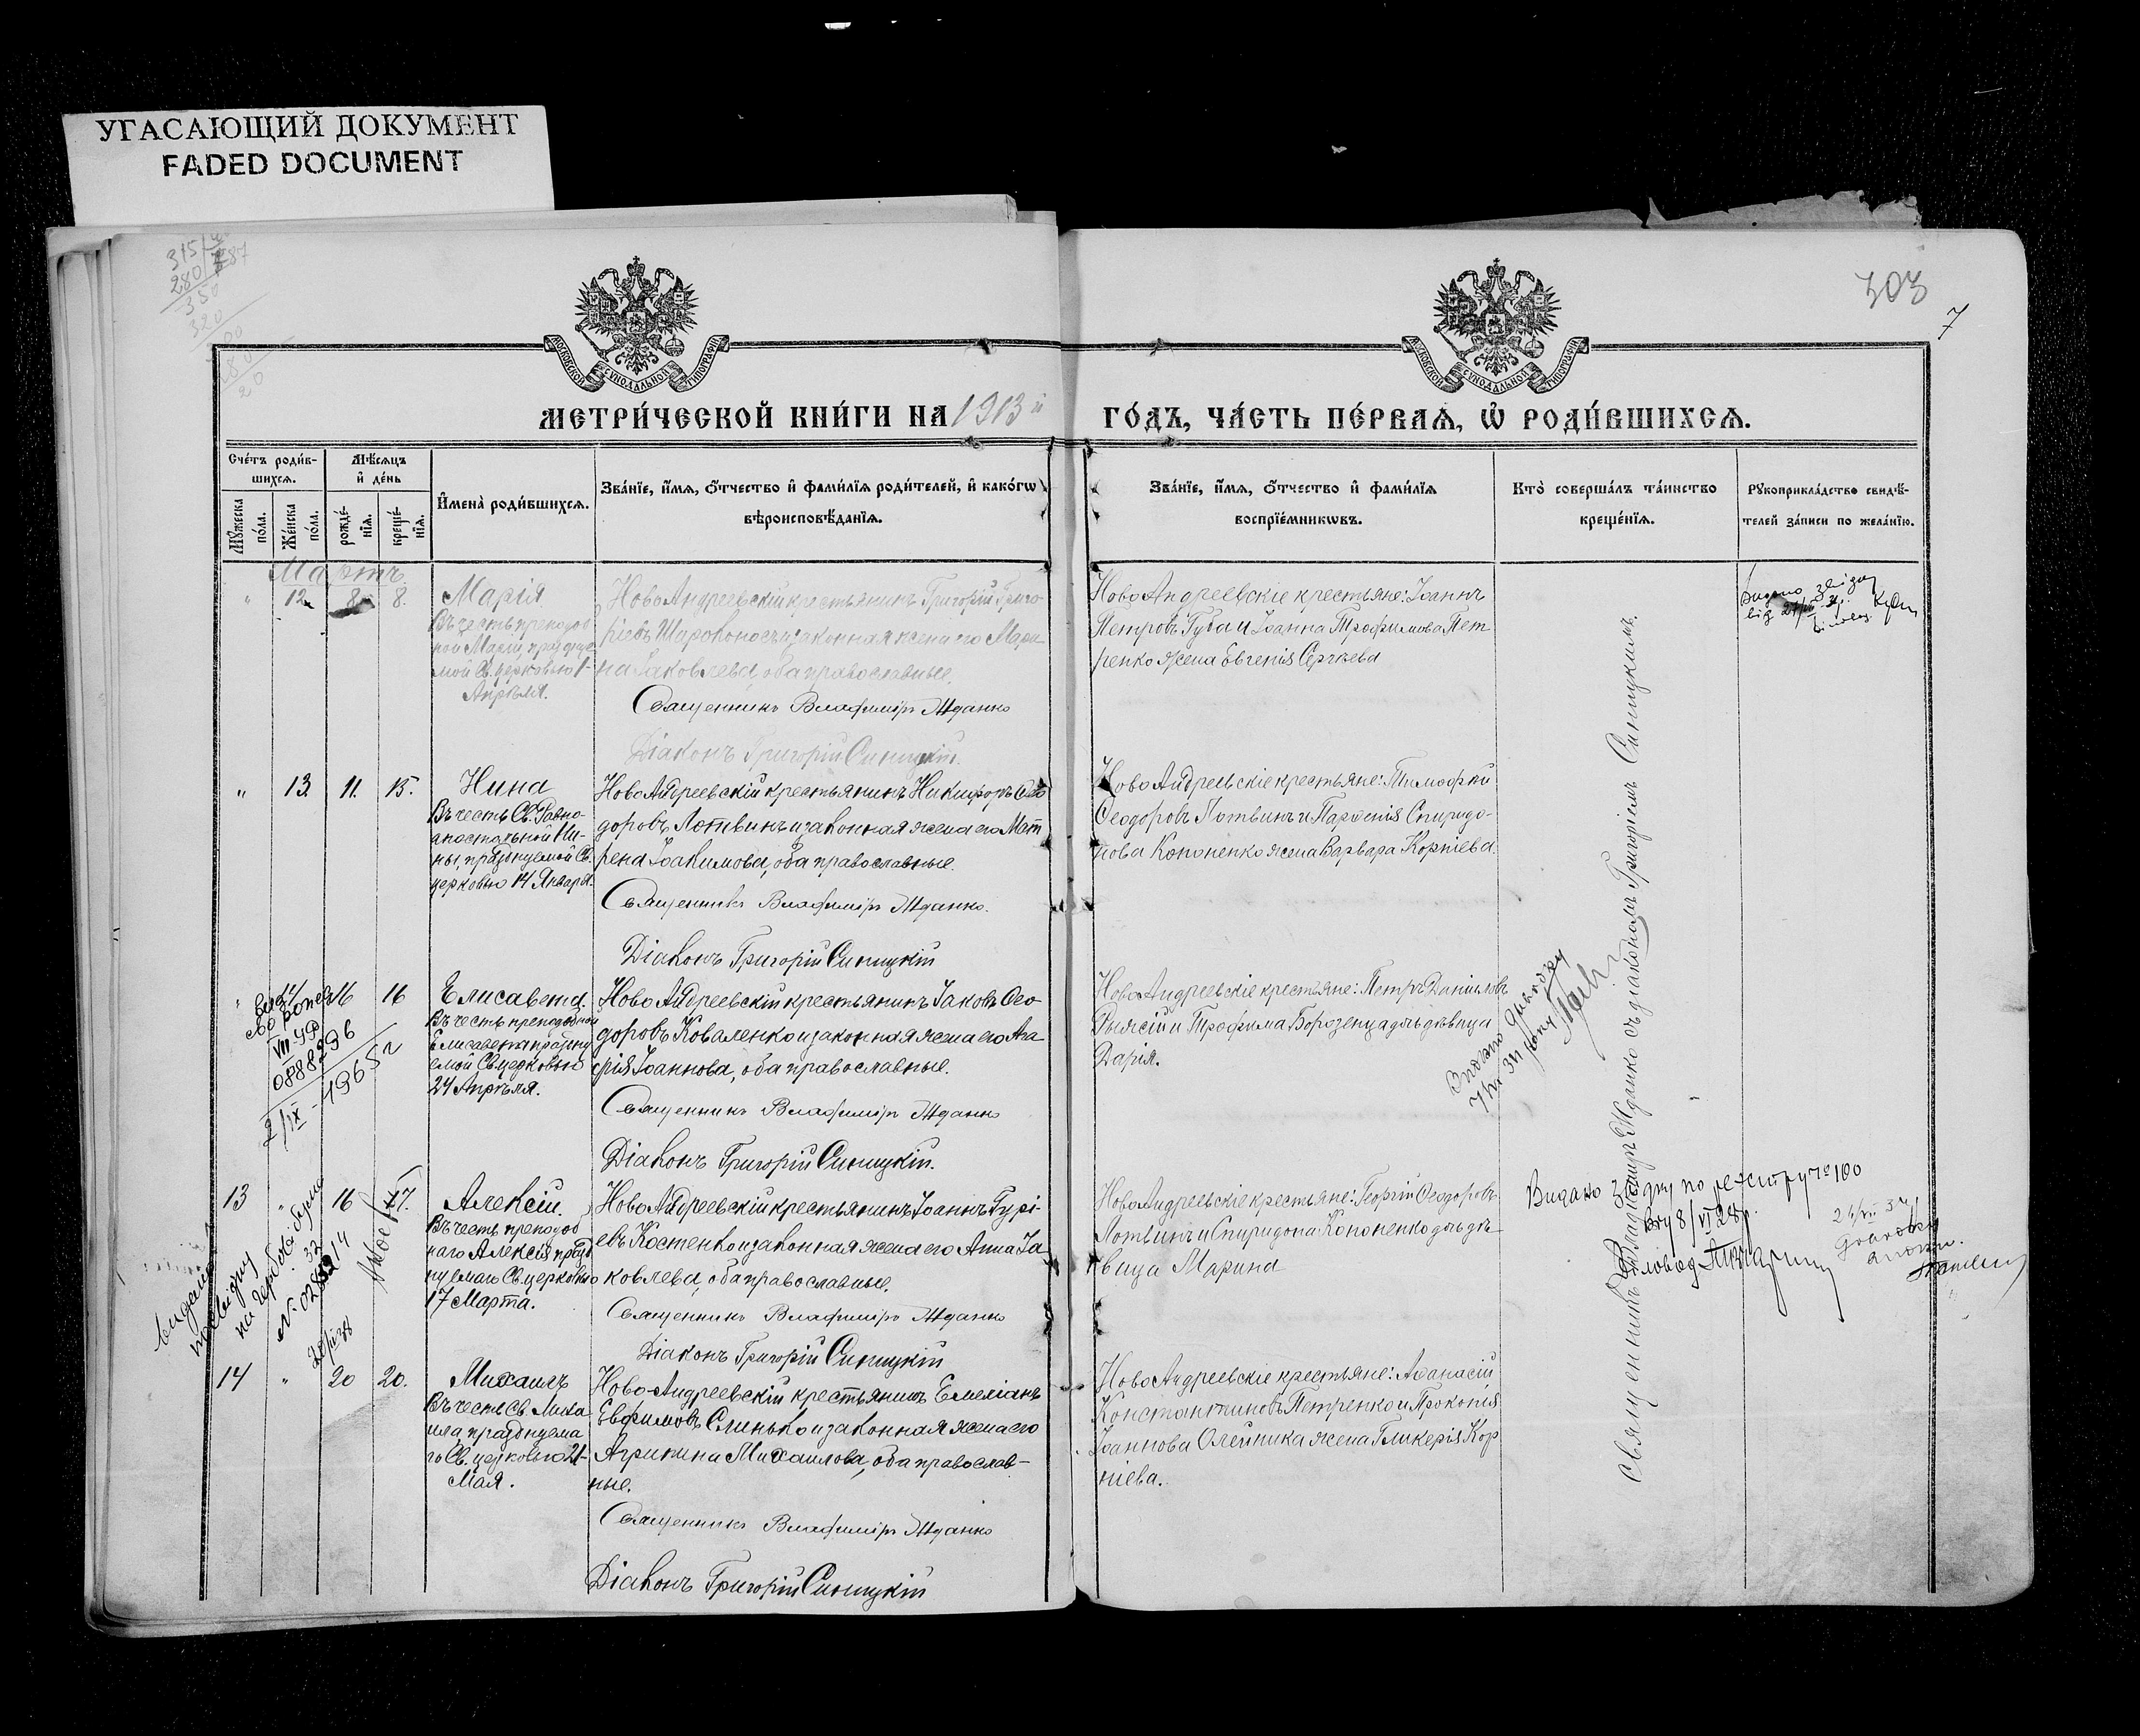 УГАСАЮЩИЙ ДОКУМЕНТ
FADED DOCUMENT
303
7
МОСКОВСКОЙ СѴНОДАЛЬНОЙ ТИПОГРАФІИ
МОСКОВСКОЙ СѴНОДАЛЬНОЙ ТИПОГРАФІИ
МЕТРИ́ЧЕСКОЙ КНИ́ГИ НА 1913й ГО́ДЪ, ЧА́СТЬ ПЕ́РВАѦ, Ѡ҆ РОДИ́ВШИХСѦ.
Сче́тъ роди́в-
шихсѧ.
Мѣ́сѧцъ
и҆ де́нь
Мꙋ́жеска по́ла.
Же́нска по́ла.
рожде́-
нїѧ.
креще́-
нїѧ.
И҆мена̀ роди́вшихсѧ.
Зва́нїе, и҆́мѧ, ѻ҆́тчество и҆ фами́лїѧ роди́телей, и҆ како́гѡ
вѣроисповѣ́данїѧ.
Зва́нїе, и҆́мѧ, ѻ҆́тчество и҆ фами́лїѧ
воспрїе́мникѡвъ.
Кто̀ соверша́лъ та́инство
креще́нїѧ.
Рꙋкоприкла́дство свидѣ́-
телей за́писи по жела́нїю.
Мартъ.
" 12 8 8.
Марія.
Въ честь преподоб
ной Маріи, празднуе
мой Св. церковью 1-
Апрѣля.
НовоАндреевскій крестьянинъ Григорій Григо
ріевъ Шароконосъ и законная жена его Мари-
на Іаковлева, оба православные.
Священникъ Владиміръ Жданко
Діаконъ Григорій Синицкій.
НовоАндреевскіе крестьяне: Іоаннъ
Петровъ Губа и Іоанна Трофимова Пет
ренко жена Евгенія Сергѣева
Видано
" 13 11. 15.
Нина
Въ честь Св. Равно-
апостольной Ни-
ны, празднуемой Св.
церковью 14 Января.
НовоАндреевскій крестьянинъ Никифоръ Ѳео
доровъ Лотвинъ и законная жена его Мат
рена Іоакимова, оба православные.
Священникъ Владиміръ Жданко.
Діаконъ Григорій Синицкій
НовоАндреевскіе крестьяне: Тимоѳей
Ѳеодоровъ Лотвинъ и Парѳенія Спиридо-
нова Кононенко жена Варвара Корніева.
" 14 16 16
VII-ЧР
0888296
2/IX-1965г
Елисавета.
Въ честь преподобной
Елисаветы праздну
емой Св. церковью
24 Апрѣля.
НовоАндреевскій крестьянинъ Іаковъ Ѳео-
доровъ Коваленко и законная жена его Ага
фія Іоаннова, оба православные.
Священникъ Владиміръ Жданко
Діаконъ Григорій Синицкій.
НовоАндреевскіе крестьяне: Петръ Даніиловъ
и Трофима Борозенца дочь дѣвица
Дарія.
13 " 16 17.
Алексій.
Въ честь преподоб
наго Алексія празд
нуемаго Св. церковью
17 Марта.
НовоАндреевскій крестьянинъ Іоаннъ Гурі-
евъ Костенко и законная жена его Анна Іа
ковлева, оба православные.
Священникъ Владиміръ Жданко
Діаконъ Григорій Синицкій
НовоАндреевскіе крестьяне: Георгій Ѳеодоровъ
Лотвинъ и Спиридона Кононенко дочь дѣ-
вица Марина
Видано
по реєстру № 100
8/VI 28р.
14 " 20 20.
Михаилъ
Въ честь Св. Миха
ила, празднуема
го Св. церковью 21-
Мая.
Ново-Андреевскій крестьянинъ Емеліанъ
Евфимовъ Слинько и законная жена его
Агрипина Михаилова, оба православ-
ные.
Священникъ Владиміръ Жданко
Діаконъ Григорій Синицкій
НовоАндреевскіе крестьяне: Аѳанасій
Константиновъ Петренко и Прокопія
Іоаннова Олейника жена Гликерія Кор
ніева.
Священникъ Владиміръ Жданко съ діакономъ Григоріемъ Синицкимъ.